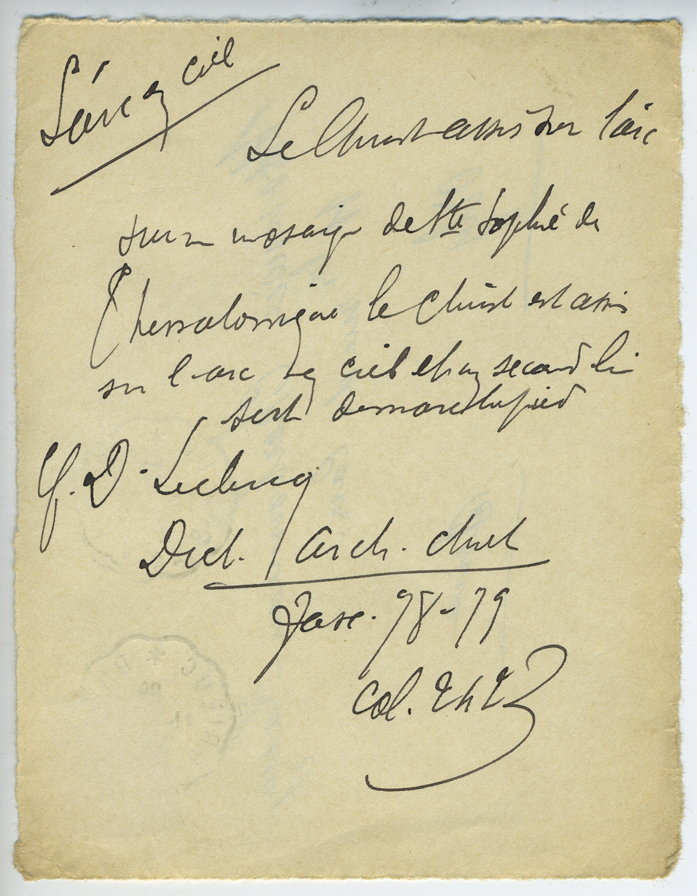 L'arc en ciel
Le Christ assis sur l'arc
sur la mosaïque de Ste Sophie de
Thessalonique le Christ est assis
sur l'arc en ciel et un second lui
sert de marchepied
Cf. D. Leclercq
Dict. arch. chret
Fasc. 78-79
Col. 2423